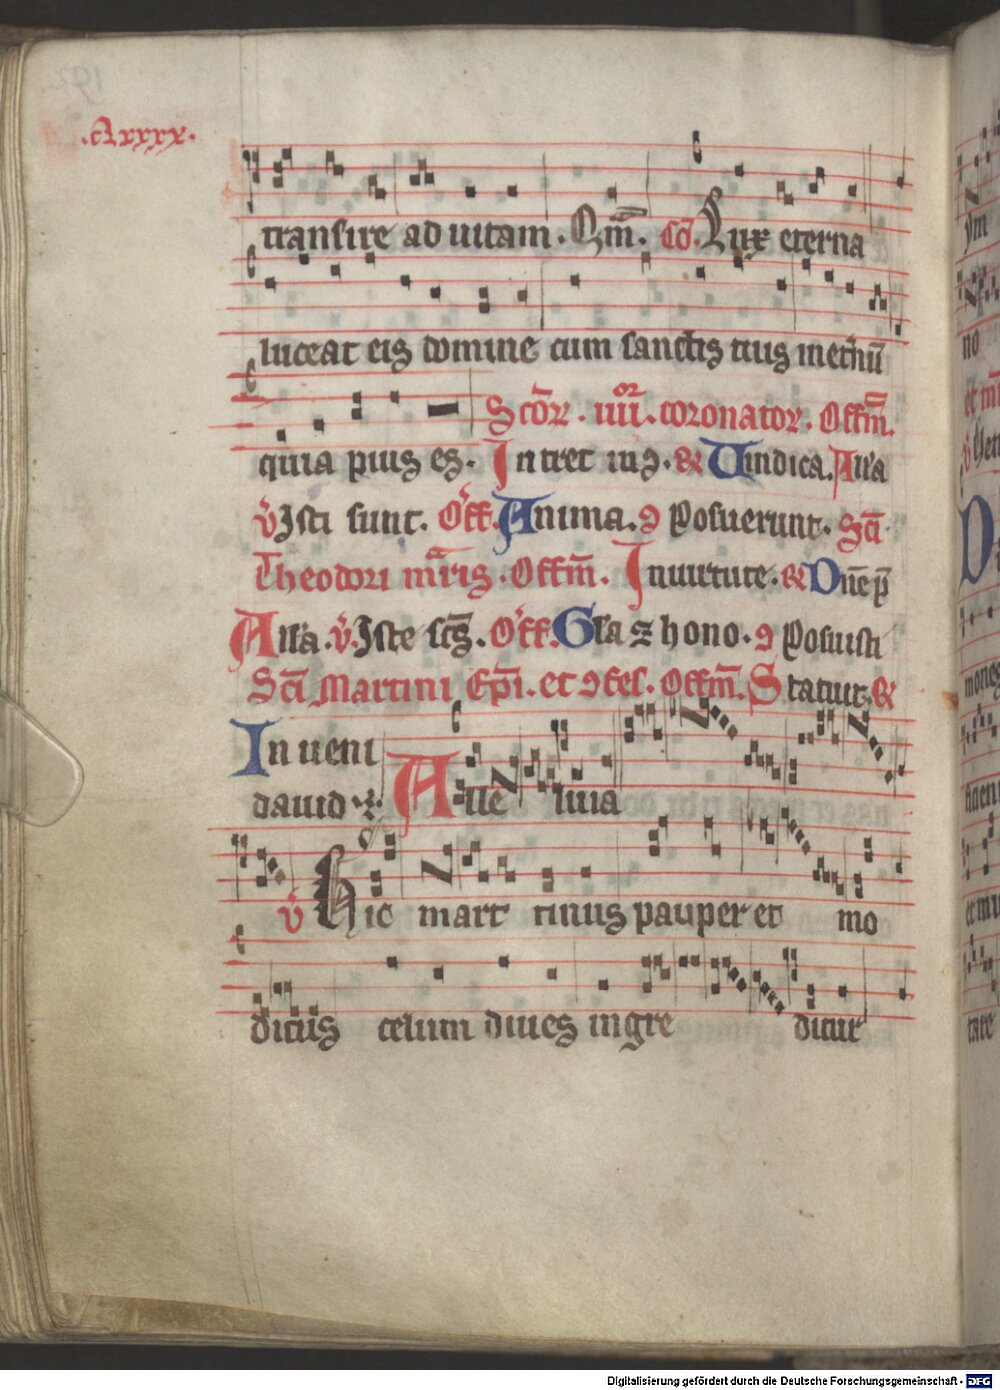 .cLxxxx.
transire ad uitam. Qm̄. Cō. Lux eterna
luceat eis domine cum sanctis tuis in et̄nū
quia pius es. Scōr. iiiior. coronator. Offm̄.
Intret in ꝯ. ℞ Uindica. All'a
v̄ Isti sunt. Off. Anima. ꝯ Posuerunt. Scī
Theodori mr̄is. Offm̄. In uirtute. ℞ Dn̄e p̄
All'a. v̄. Iste sc̄s. Off. Gl'a ⁊ hono. ꝯ Posuisti
Scī Martini Ep̄i. et ꝯfes. Offm̄. Statuit. ℞
Inueni
dauid Alle luia
v̄ Hic mart tinus pauper et mo
dicus celum diues ingre ditur
Digitalisierung gefördert durch die Deutsche Forschungsgemeinschaft - DFG